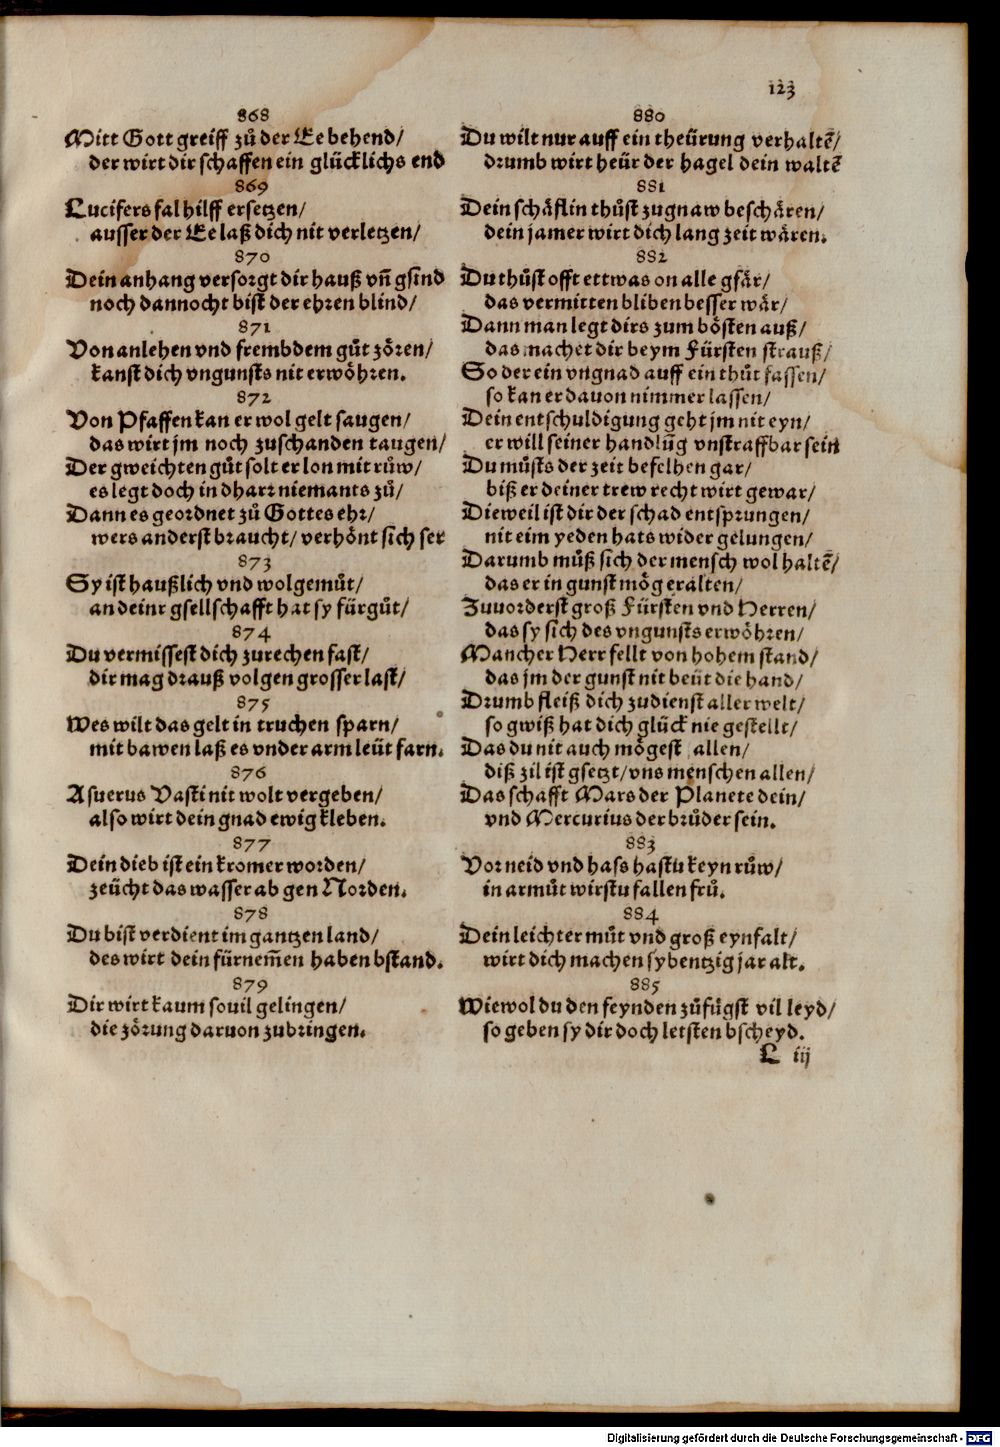 123
868
Mitt Gott greiff zů der Ee behend/
der wirt dir schaffen ein glücklichs end
869
Lucifers fal hilff ersetzen/
ausser der Ee laß dich nit verletzen/
870
Dein anhang versorgt dir hauß vn̄ gsind
noch dannocht bist der ehren blind/
871
Von anlehen vnd frembdem gůt zören/
kanst dich vngunsts nit erwöhren.
872
Von Pfaffen kan er wol gelt saugen/
das wirt jm noch zuschanden taugen/
Der gweichten gůt solt er lon mit růw/
es legt doch in dharr niemants zů/
Dann es geordnet zů Gottes ehr/
wers anderst braucht/ verhönt sich ser
873
Sy ist haußlich vnd wolgemůt/
an deinr gsellschafft hat sy fürgůt/
874
Du vermissest dich zurechen fast/
dir mag drauß volgen grosser last/
875
Wes wilt das gelt in truchen sparn/
mit bawen laß es vnder arm leüt farn.
876
Asuerus Vasti nit wolt vergeben/
also wirt dein gnad ewig kleben.
877
Dein dieb ist ein kromer worden/
zeücht das wasser ab gen Norden.
878
Du bist verdient im gantzen land/
des wirt dein fürnem̄en haben bstand.
879
Dir wirt kaum souil gelingen/
die zörung daruon zubringen.
880
Du wilt nur auff ein theürung verhaltē/
drumb wirt heür der hagel dein waltē
881
Dein schäflin thůst zugnaw beschären/
dein jamer wirt dich lang zeit wären.
882
Du thůst offt ettwas on alle gfär/
das vermitten bliben besser wär/
Dann man legt dirs zum bösten auß/
das machet dir beym Fürsten strauß/
So der ein vngnad auff ein thůt fassen/
so kan er dauon nimmer lassen/
Dein entschuldigung geht jm nit eyn/
er will seiner handlūg vnstraffbar sein
Du můsts der zeit befelhen gar/
biß er deiner trew recht wirt gewar/
Dieweil ist dir der schad entsprungen/
nit eim yeden hats wider gelungen/
Darumb můß sich der mensch wol haltē/
das er in gunst mög eralten/
Zuuorderst groß Fürsten vnd Herren/
das sy sich des vngunsts erwöhren/
Mancher Herr fellt von hohem stand/
das jm der gunst nit beüt die hand/
Drumb fleiß dich zudienst aller welt/
so gwiß hat dich glück nie gestellt/
Das du nit auch mögest allen/
diß zil ist gsetzt/ vns menschen allen/
Das schafft Mars der Planete dein/
vnd Mercurius der brůder sein.
883
Vor neid vnd hass hastu keyn růw/
in armůt wirstu fallen frů.
884
Dein leichter můt vnd groß eynfalt/
wirt dich machen sybentzig jar alt.
885
Wiewol du den feynden zůfůgst vil leyd/
so geben sy dir doch letsten bscheyd.
L iij
Digitalisierung gefördert durch die Deutsche Forschungsgemeinschaft - DFG